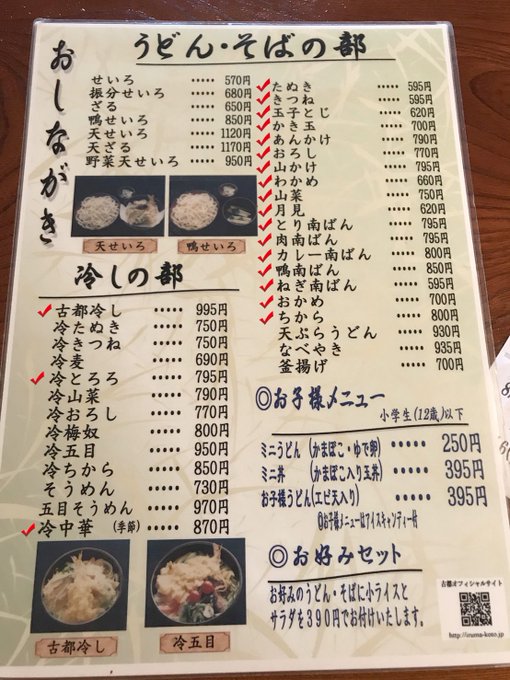 おしながき
うどん・そばの部
せいろ ・・・・・ 570円
振分せいろ ・・・・・ 680円
ざる ・・・・・ 650円
鴨せいろ ・・・・・ 850円
天せいろ ・・・・・ 1120円
天ざる ・・・・・ 1170円
野菜天せいろ ・・・・・ 950円
天せいろ
鴨せいろ
たぬき ・・・・・ 595円
きつね ・・・・・ 595円
玉子とじ ・・・・・ 620円
かき玉 ・・・・・ 700円
あんかけ ・・・・・ 790円
おろし ・・・・・ 770円
山かけ ・・・・・ 795円
わかめ ・・・・・ 660円
山菜 ・・・・・ 750円
月見 ・・・・・ 620円
とり南ばん ・・・・・ 795円
肉南ばん ・・・・・ 795円
カレー南ばん ・・・・・ 800円
鴨南ばん ・・・・・ 850円
ねぎ南ばん ・・・・・ 595円
おかめ ・・・・・ 700円
ちから ・・・・・ 800円
天ぷらうどん ・・・・・ 930円
なべやき ・・・・・ 935円
釜揚げ ・・・・・ 700円
冷しの部
古都冷し ・・・・・ 995円
冷たぬき ・・・・・ 750円
冷きつね ・・・・・ 750円
冷麦 ・・・・・ 690円
冷とろろ ・・・・・ 795円
冷山菜 ・・・・・ 790円
冷おろし ・・・・・ 770円
冷梅奴 ・・・・・ 800円
冷五目 ・・・・・ 950円
冷ちから ・・・・・ 850円
そうめん ・・・・・ 730円
五目そうめん ・・・・・ 970円
冷中華 (季節) ・・・・・ 870円
古都冷し
冷五目
◎お子様メニュー
小学生(12歳)以下
ミニうどん (かまぼこ・ゆで卵) ・・・・・ 250円
ミニ丼 (かまぼこ入り玉丼) ・・・・・ 395円
お子様うどん(エビ天入り) ・・・・・ 395円
◎お子様メニューはアイスキャンディー付
◎お好みセット
お好みのうどん・そばに小ライスと
サラダを390円でお付けいたします。
古都オフィシャルサイト
http://iruma-koto.jp